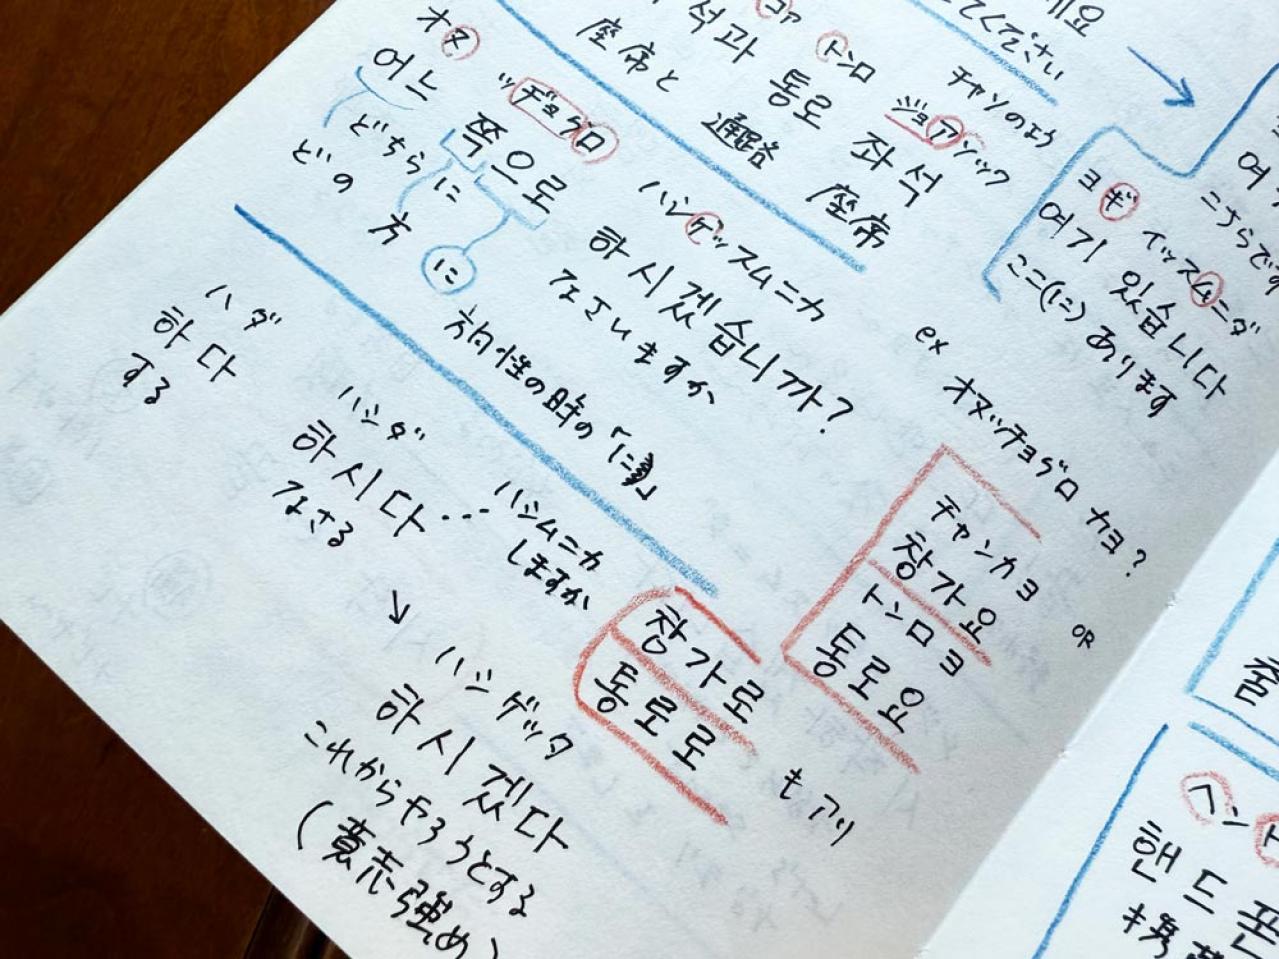 세요
てください
コァ トンロ チャソのよう
석과 통로 ジョアソック
座席と 通路 좌석
座席
オヌ ッヂョグロ
어느 쪽으로 ハシゲッスムニカ
どちらに 하시겠습니까?
どの 方 に なさいますか
方向性の時の「に」
ヨギ イッスムニダ
여기 있습니다
ここ(に)あります
こちらです
ex オヌッチョグロ カヨ?
チャンカヨ
창가요
OR
トンロヨ
통로요
창가로
통로로
もアリ
ハダ
하다
する
ハシダ
하시다… ハシムニカ
なさる しますか
ハシゲッタ
하시겠다
これからやろうとする
(意志強め)
줄
ヘンド
핸드폰
携帯